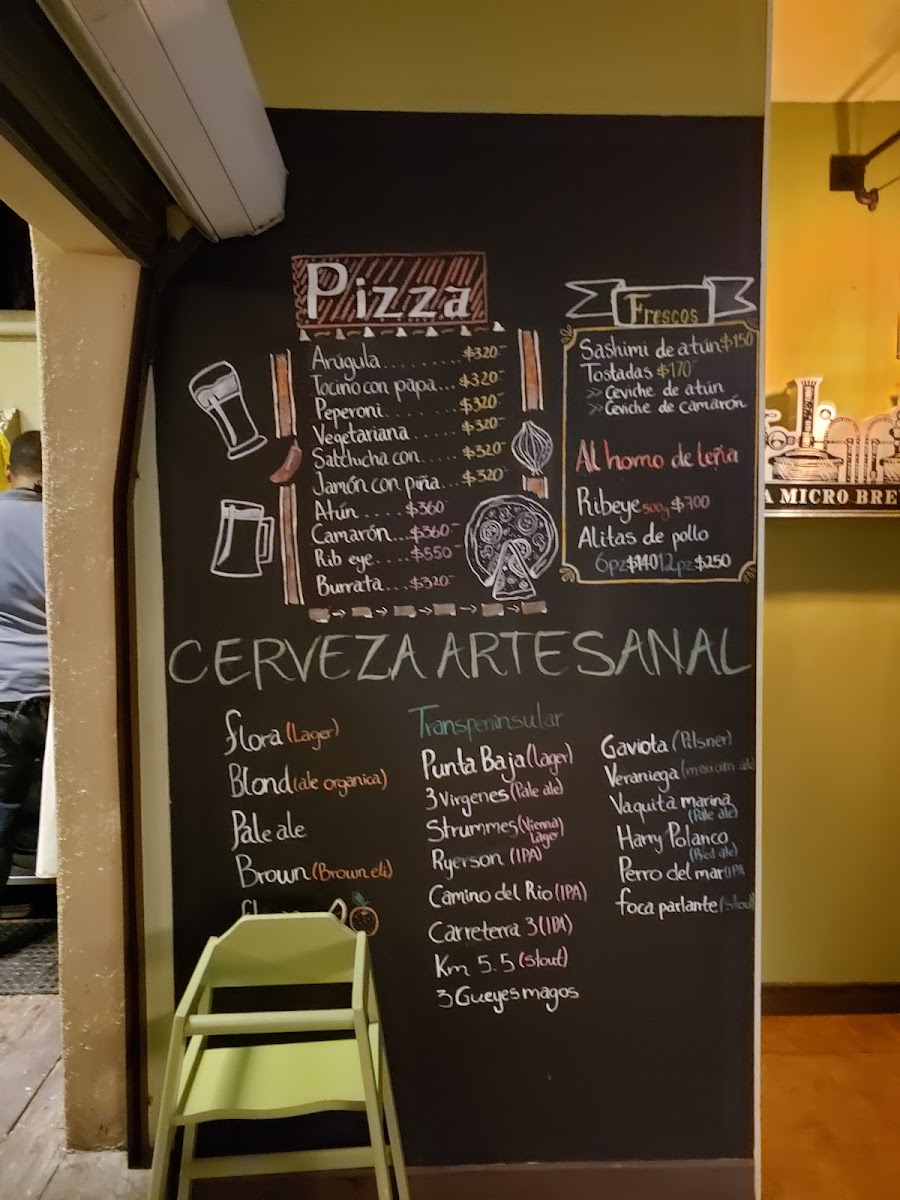 Pizza
Arúgula.........$320-
Tocino con papa...$320-
Peperoni.........$320-
Vegetariana......$320-
Salchicha con....$320-
Jamón con piña...$320-
Atún.....$360
Camarón...$360-
Rib eye....$550-
Burrata...$320-
Frescos
Sashimi de atún $150
Tostadas $170
>> Ceviche de atún
>> Ceviche de camarón
Al horno de leña
Ribeye 500g $700
Alitas de pollo
6pz $140 12pz $250
CERVEZA ARTESANAL
flora (Lager)
Blond (ale organica)
Pale ale
Brown (Brown eli)
Transpeninsular
Punta Baja (lager)
3 Virgenes (Pale ale)
Strummes (Vienna
Lager)
Ryerson (IPA)
Camino del Rio (IPA)
Carreterra 3 (IPA)
Km 5.5 (stout)
3 Gueyes magos
Gaviota (Pilsner)
Veraniega (mexican ale)
Vaquita marina
(Pale ale)
Harry Polanco
(Red ale)
Perro del mar IPA
foca parlante (stout)
A MICRO BREW